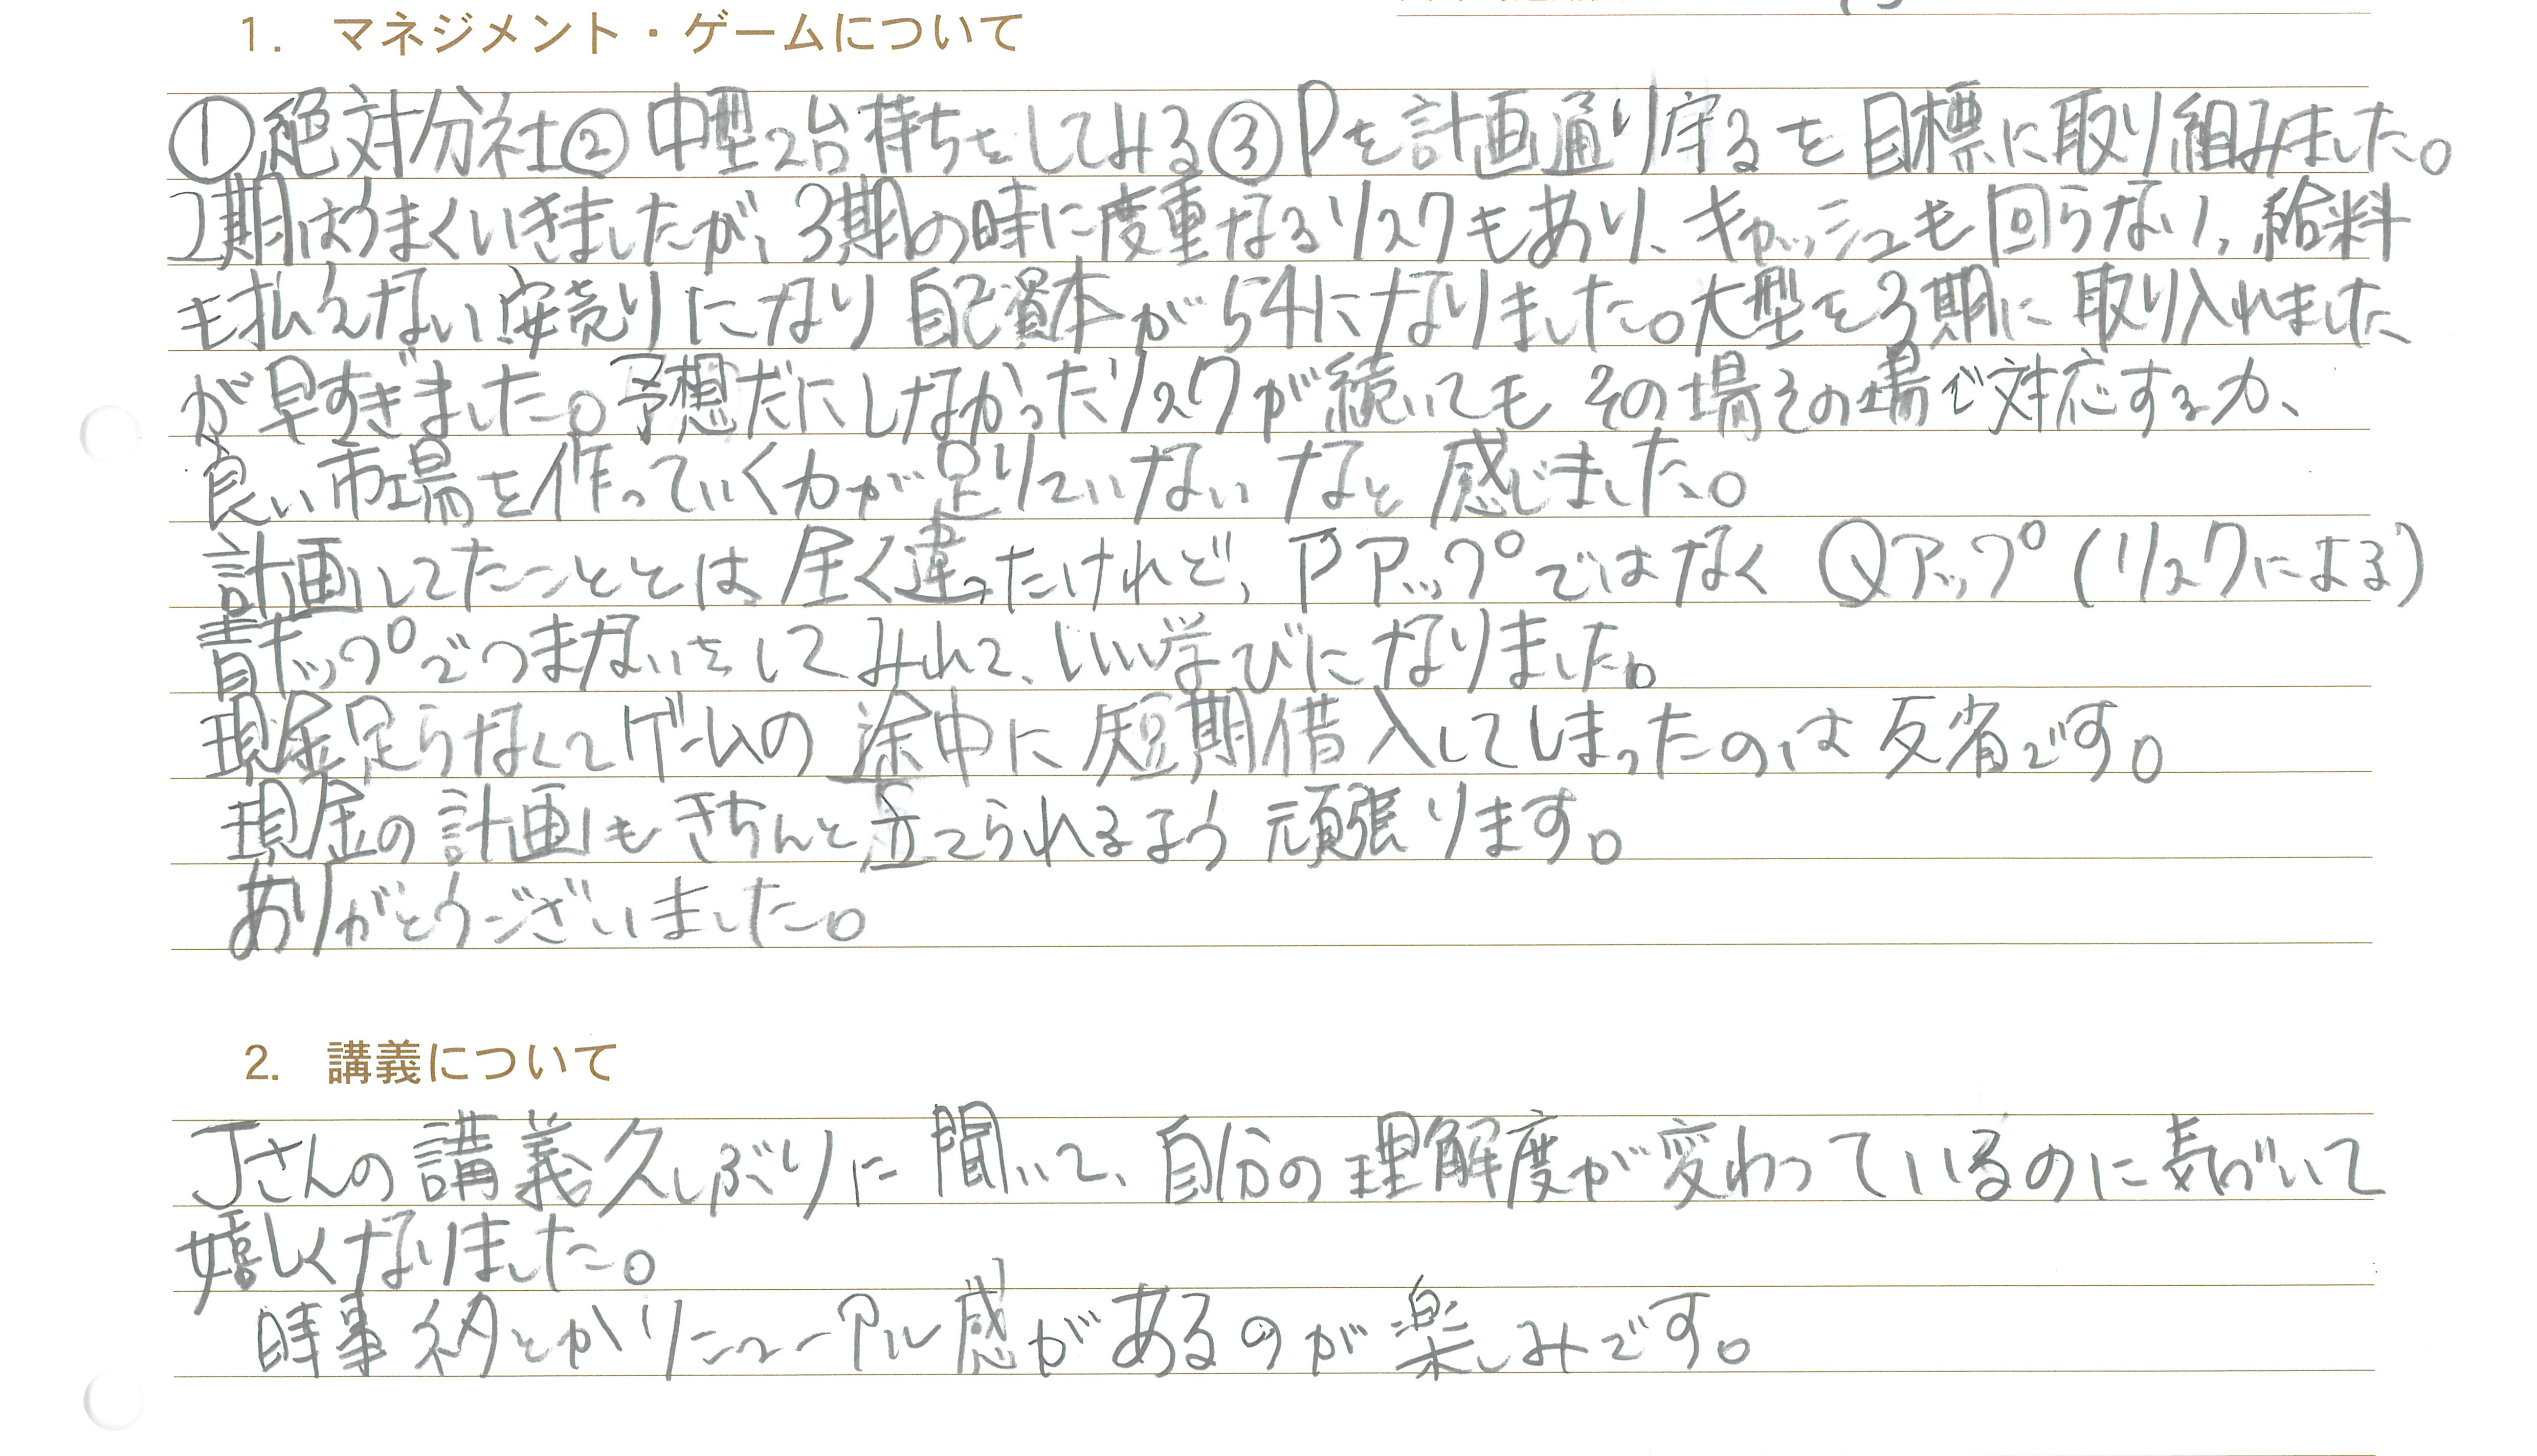 1. マネジメント・ゲームについて
①絶対分社②中型2台持ちをしてみる③Pを計画通り守るを目標に取り組みました。
2期はうまくいきましたが、3期の時に度重なるリスクもあり、キャッシュも回らない、給料
も払えない安売りになり自己資本が54になりました。大型を3期に取り入れました
が早すぎました。予想だにしなかったリスクが続いてもその場その場で対応する力、
良い市場を作っていく力が足りていないなと感じました。
計画してたこととは全く違ったけれど、PアップではなくQアップ(リスクによる)
青チップでつまないをしてみれて、いい学びになりました。
現金足らなくてゲームの途中に短期借入してしまったのは反省です。
現金の計画もきちんと立てられるよう頑張ります。
ありがとうございました。
2. 講義について
Jさんの講義久しぶりに聞いて、自分の理解度が変わっているのに気づいて
嬉しくなりました。
時事ネタとかリニューアル感があるのが楽しみです。